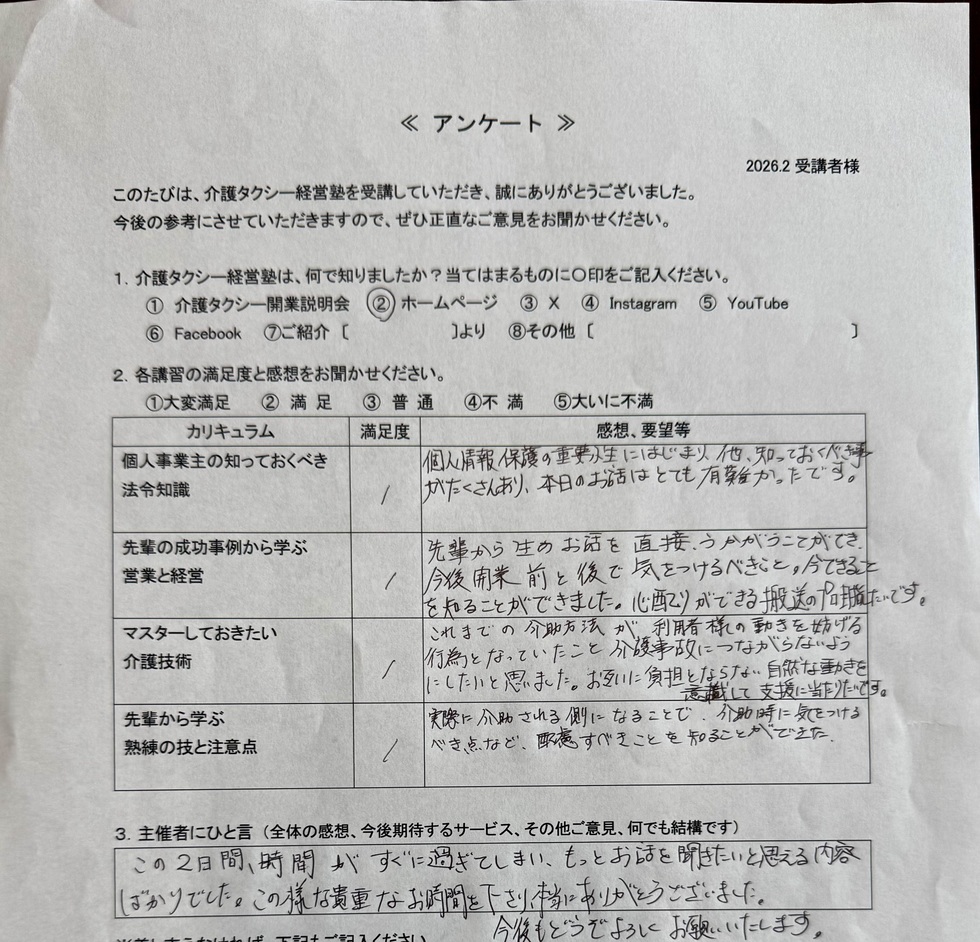 ≪ アンケート ≫
2026.2 受講者様
このたびは、介護タクシー経営塾を受講していただき、誠にありがとうございました。
今後の参考にさせていただきますので、ぜひ正直なご意見をお聞かせください。
1. 介護タクシー経営塾は、何で知りましたか？当てはまるものに〇印をご記入ください。
① 介護タクシー開業説明会 ② ホームページ ③ X ④ Instagram ⑤ YouTube
⑥ Facebook ⑦ご紹介 [ ]より ⑧その他 [ ]
2. 各講習の満足度と感想をお聞かせください。
①大変満足 ② 満 足 ③ 普 通 ④不 満 ⑤大いに不満
カリキュラム 満足度 感想、要望等
個人事業主の知っておくべき
法令知識
1
個人情報保護の重要性にはじまり、他、知っておくべき事
がたくさんあり、本日のお話はとても有難かったです。
先輩の成功事例から学ぶ
営業と経営
1
先輩から生のお話を直接、うかがうことができ、
今後開業前と後で気をつけるべきこと。今できること
を知ることができました。心配りができる搬送のプロ職たいです。
マスターしておきたい
介護技術
1
これまでの介助方法が利用者様の動きを妨げる
行為となっていたこと介護事故につながらないよう
にしたいと思いました。お互いに負担とならない自然な動きを
意識して支援に当たりたいです。
先輩から学ぶ
熟練の技と注意点
1
実際に介助される側になることで、介助時に気をつける
べき点など、配慮すべきことを知ることができた。
3. 主催者にひと言（全体の感想、今後期待するサービス、その他ご意見、何でも結構です）
この2日間、時間がすぐに過ぎてしまい、もっとお話を聞きたいと思える内容
ばかりでした。この様な貴重なお時間を下さり本当にありがとうございました。
今後もどうぞよろしくお願いいたします。